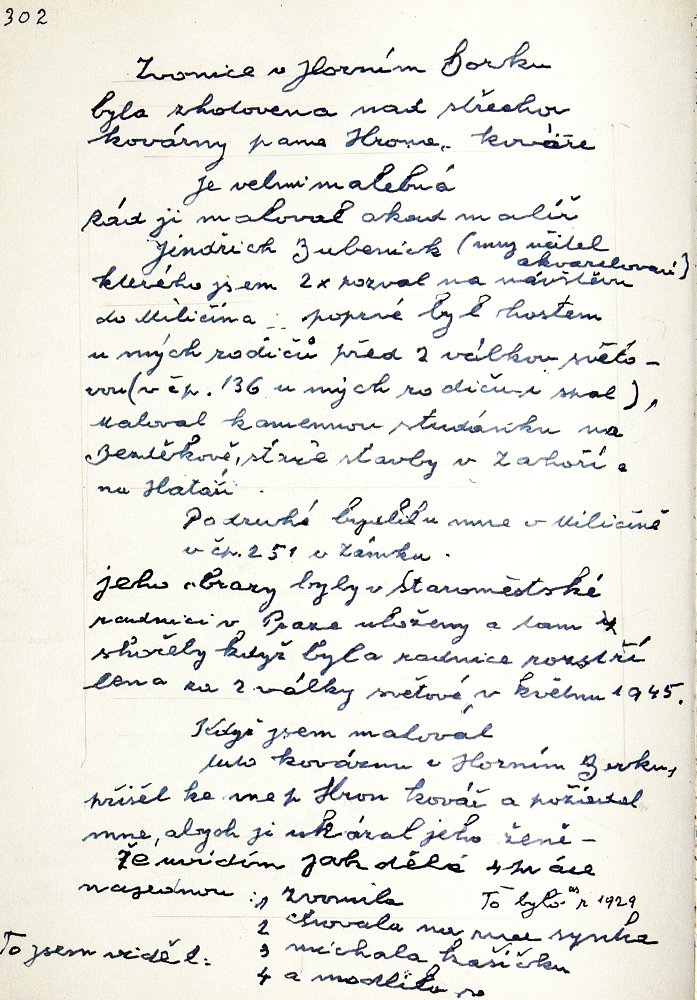 302
Zvonice v Horním Borku
byla zhotovena nad střechou
kovárny pana Hrona, kováře
je velmi malebná
rád ji maloval akad malíř
Jindřich Bubeníček (muj učitel
akvarelování)
kterého jsem 2x pozval na návštěvu
do Miličína poprvé byl hostem
u mých rodičů před 2 válkou světo-
vou (v čp. 136 u mých rodičů-i spal),
maloval kamennou studánku na
Bezděkově, staré stavby v Zahoří a
na Hataři.
Podruhé byl u mne v Miličíně
v čp. 251 v Zámku.
jeho obrazy byly v Staroměstské
radnici v Praze uloženy a tam
shořely když byla radnice rozstří
lena za 2 války světové v květnu 1945.
Když jsem maloval
tuto kovárnu v Horním Borku,
přišel ke mně p Hron kovář a požádal
mne, abych ji ukázal jeho ženě-
že uvidím jak dělá 4 práce
najednou: 1 zvonila To bylo as r 1929
2 chovala na ruce synka
To jsem viděl: 3 míchala kašičku
4 a modlila se